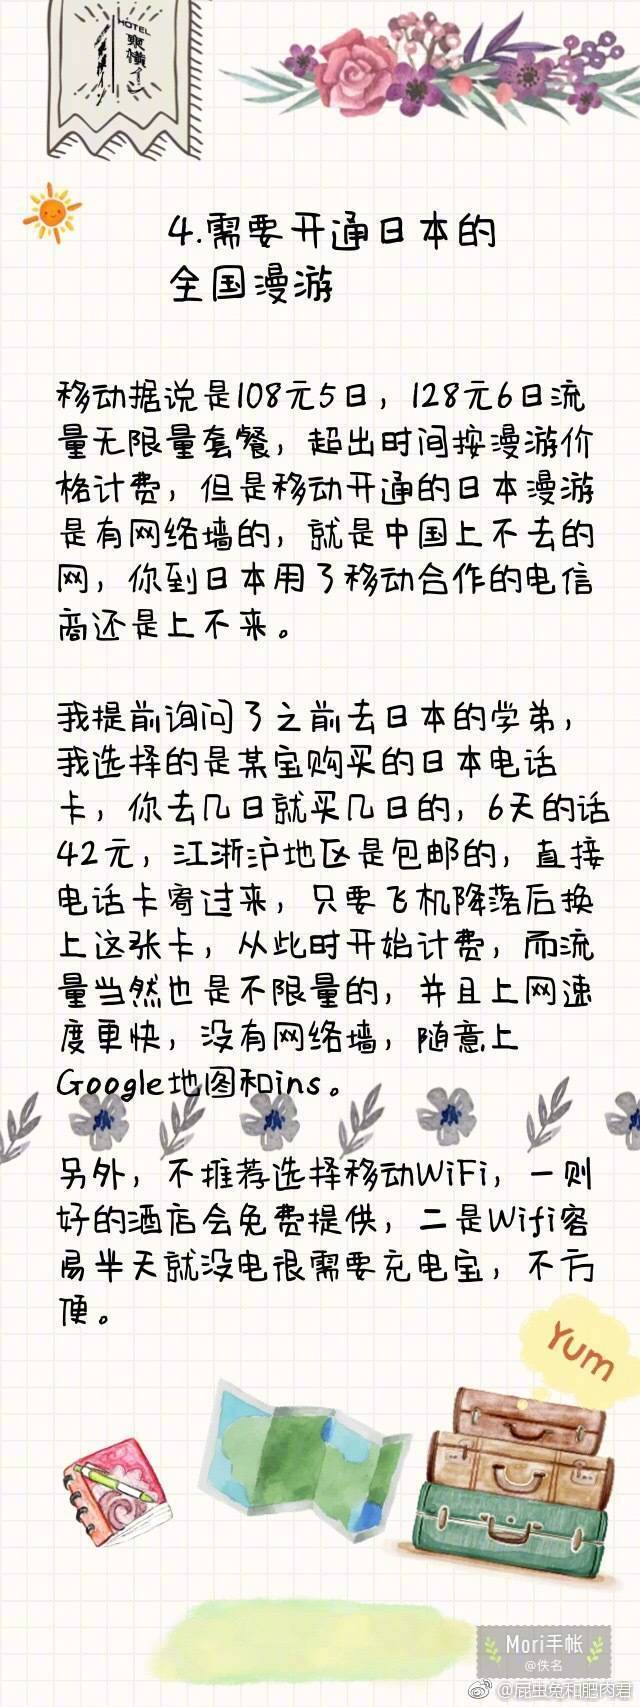 HOTEL
東横イン
4.需要开通日本的
全国漫游
移动据说是108元5日，128元6日流
量无限量套餐，超出时间按漫游价
格计费，但是移动开通的日本漫游
是有网络墙的，就是中国上不去的
网，你到日本用了移动合作的电信
商还是上不来。
我提前询问了之前去日本的学弟，
我选择的是某宝购买的日本电话
卡，你去几日就买几日的，6天的话
42元，江浙沪地区是包邮的，直接
电话卡寄过来，只要飞机降落后换
上这张卡，从此时开始计费，而流
量当然也是不限量的，并且上网速
度更快，没有网络墙，随意上
Google地图和ins。
另外，不推荐选择移动WiFi，一则
好的酒店会免费提供，二是Wifi容
易半天就没电很需要充电宝，不方
便。
Yum
Mori手帐
@佚名
@昆虫兔和肥肉君